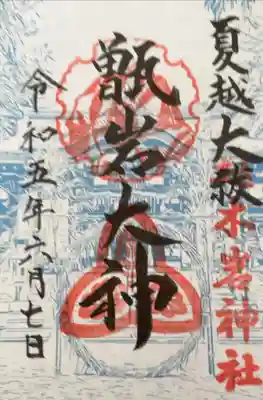 夏越大祓
木岩神社
甑岩大神
令和五年六月七日